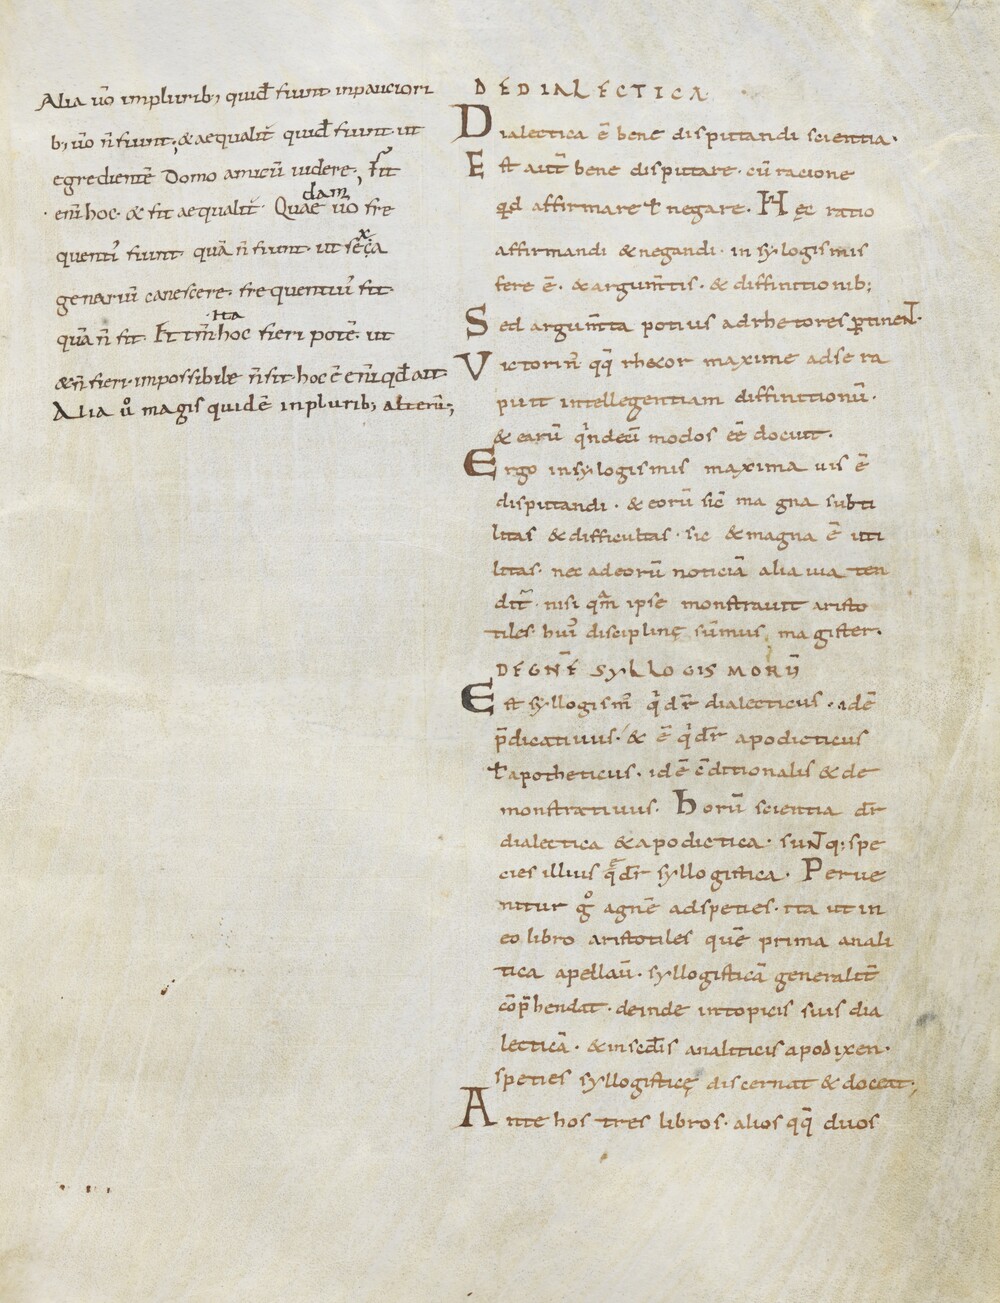 Alia ũo inplurib; quidẽ fiunt inpauciori
b; ũo ñ fiunt; & aequalit̃ quidẽ fiunt ut
egredientẽ domo amicũ uidere. Fit
eñi hoc & fit aequalit̃ Quae dam ũo fre
quenti᷒ fiunt quã ñ fiunt ut sexa
genariũ canescere frequentiu᷒ fit
quã ñ fit It ita tm̃ hoc fieri potẽ ut
& ñ fieri impossibile ñ sit hoc ẽ eñi qđ ait
Alia ů magis quidẽ inplurib; alterũ;
DE DIALECTICA
Dialectica ẽ bene disputandi scientia.
Est aut̃ bene disputare. cũ racione
qđ affirmare ł negare. Hęc ratio
affirmandi & negandi. in sylogismis
fere ẽ. & argum̃tis. & diffinitionib;
Sed argum̃ta potius ad rhetores ꝑtineNT.
Victorin᷒ qq̃ rhetor maxime adsera
puit intellegentiam diffinitionũ.
& earũ qͥndecĩ modos eẽ docuit.
Ergo insylogismis maxima uis ẽ
disputandi. & eorũ sic̃ magna subti
litas & difficultas. sic & magna ẽ uti
litas. nec ad eorũ noticiã alia uia ten
dit̃. nisi qm̃ ipse monstrauit aristo
tiles. hui᷒ disciplinę sũmus magister.
DE GÑE SYLLOGISMORŨ
Est sylogism᷒ qͥ dr̃ dialecticus. idẽ
p̃dicatiuus. & ẽ qͥ dr̃ apodicticus
ł apotheticus. idẽ c̃ditionalis & de
monstratiuus. horũ scientia dr̃
dialectica & apodictica. suNT q; spe
cies illius q̃ dr̃ syllogistica. Perue
nitur gͦ agñe adspeties. ita ut in
eo libro aristotiles quẽ prima anali
tica apellaũ. syllogisticã generalit̃
cõp̃hendat. deinde intopicis suis dia
lecticã. & inscđis analiticis apodixen.
speties syllogisticę discernat & doceat;
Ante hos tres libros. alios qq̃ duos